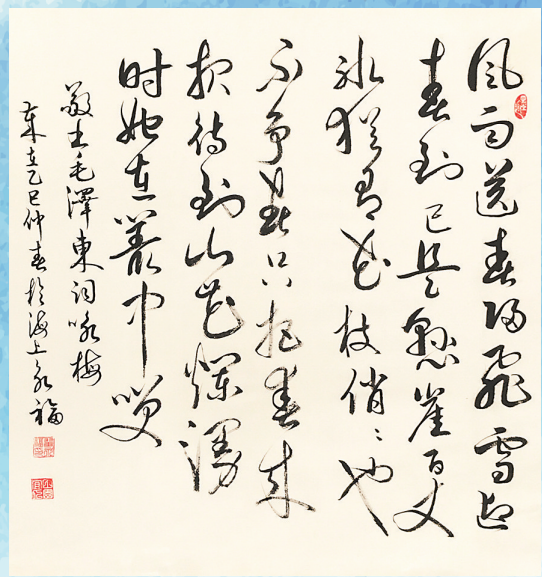 风雨送春归飛雪迎
春到已是懸崖百丈
冰猶有花枝俏〻也
不争春只把春来
报待到山花爛漫
时她在叢中咲
敬书毛澤東词咏梅
在乙巳仲春於海上永福